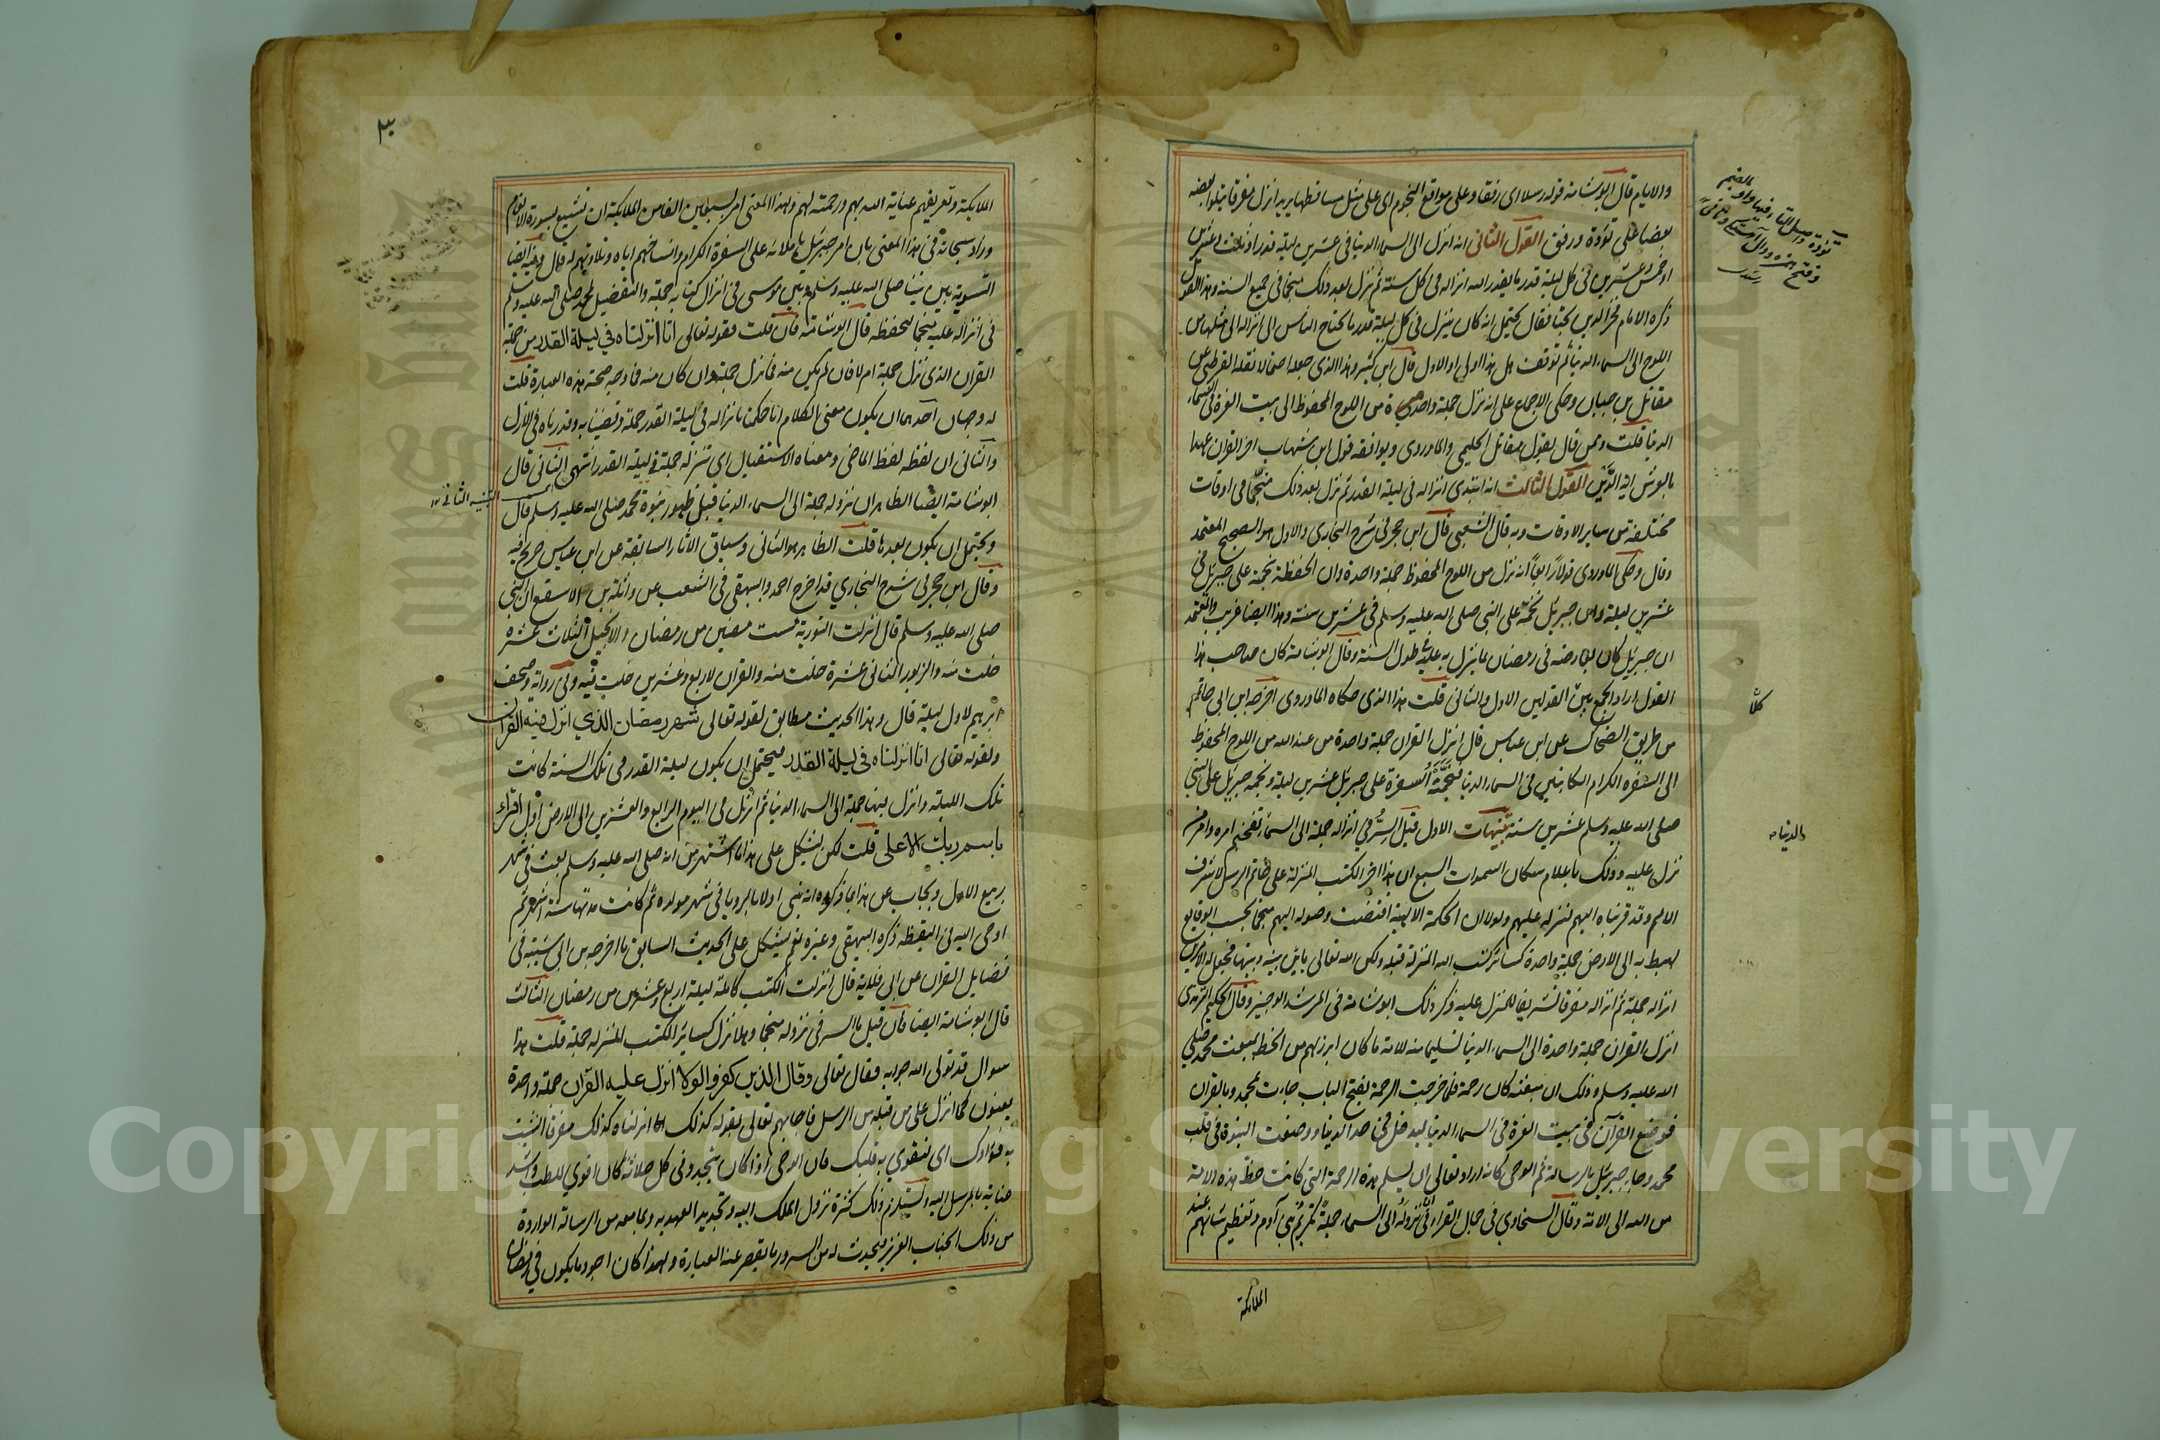 والايام قال ابو شامة قوله رسلا اى رفقا وعلى مواقع النجوم اى على مثل مساقطها يريد انزل مفرقا يتلو بعضه
بعضا على تؤدة ورفق القول الثانى انه انزل الى السماء الدنيا فى عشرين ليلة قدر او ثلث وعشرين
او خمس وعشرين فى كل ليلة قدر ما يقدر الله انزاله فى كل سنة ثم نزل بعد ذلك منجما فى جميع السنة وهذا القول
ذكره الامام فخر الدين بحثا فقال يحتمل انه كان ينزل فى كل ليلة قدر ما يحتاج الناس الى انزاله الى مثلها من
اللوح الى السماء الدنيا ثم توقف هل هذا اولى او الاول قال ابن كثير وهذا الذى جعله احتمالا نقله القرطبى عن
مقاتل بن حيان وحكى الاجماع على انه نزل جملة واحدة من اللوح المحفوظ الى بيت العزة فى السماء
الدنيا قلت وممن قال بقول مقاتل الحليمى والماوردى ويوافقه قول ابن شهاب اخر القران عهدا
بالعرش اية الدين القول الثالث انه ابتدى انزاله فى ليلة القدر ثم نزل بعد ذلك منجما فى اوقات
مختلفة من ساير الاوقات وبه قال الشعبى قال ابن حجر فى شرح البخارى والاول هو الصحيح المعتمد
وقال وحكى الماوردى قولا رابعا انه نزل من اللوح المحفوظ جملة واحدة وان الحفظة نجمته على جبريل فى
عشرين ليلة وان جبريل نجمه على النبى صلى الله عليه وسلم فى عشرين سنة وهذا ايضا غريب والمعتمد
ان جبريل كان يعارضه فى رمضان بما ينزل به عليه طول السنة وقال ابو شامة كان صاحب هذا
القول اراد الجمع بين القولين الاول والثانى قلت هذا الذى حكاه الماوردى اخرجه ابن ابى حاتم
من طريق الضحاك عن ابن عباس قال انزل القران جملة واحدة من عند الله من اللوح المحفوظ
الى السفرة الكرام الكاتبين فى السماء الدنيا فنجمته السفرة على جبريل عشرين ليلة ونجمه جبريل على النبى
صلى الله عليه وسلم عشرين سنة تنبيهات الاول قيل السر فى انزاله جملة الى السماء تفخيم امره وامر من
نزل عليه وذلك باعلام سكان السموات السبع ان هذا اخر الكتب المنزلة على خاتم الرسل لاشرف
الامم وقد قربناه اليهم لننزله عليهم ولولا ان الحكمة الالهية اقتضت وصوله اليهم منجما بحسب الوقايع
لهبط به الى الارض جملة واحدة كساير كتب الله المنزلة قبله ولكن الله تعالى باين بينه وبينها فجعل له الامرين
انزاله جملة ثم انزاله مفرقا تشريفا للمنزل عليه ذكر ذلك ابو شامة فى المرشد الوجيز وقال الحكيم الترمذى
انزل القران جملة واحدة الى السماء الدنيا تسليما منه للامة ما كان ابرز لهم من الحظ بمبعث محمد صلى
الله عليه وسلم وذلك ان بعثته كان رحمة فلما خرجت الرحمة بفتح الباب جاءت بمحمد وبالقران
فوضع القرآن فى بيت العزة فى السماء الدنيا ليدخل فى حد الدنيا ووضعت النبوة فى قلب
محمد وجاء جبريل بالرسالة ثم الوحى كانه اراد تعالى ان يسلم هذه الرحمة التى كانت حظ هذه الامة
من الله الى الامة وقال السخاوى فى جمال القراء فى نزوله الى السماء جملة تكريم بنى آدم وتعظيم شانهم عند
الملايكة
كلا
والدنيا
الملايكة وتعريفهم عناية الله بهم ورحمته لهم ولهذا المعنى امر سبعين الفا من الملايكة ان تشيع سورة الانعام
وزاد سبحانه فى هذا المعنى بان امر جبريل باملائه على السفرة الكرام وانساخهم اياه وتلاوتهم له قال وفيه ايضا
التسوية بين نبينا صلى الله عليه وسلم وبين موسى فى انزال كتابه جملة والتفضيل لمحمد صلى الله عليه وسلم
فى انزاله عليه منجما ليحفظه قال ابو شامة فان قلت فقوله تعالى انا انزلناه في ليلة القدر من جملة
القران الذى نزل جملة ام لا فان لم يكن منه فما نزل جملة وان كان منه فما وجه صحة هذه العبارة قلت
له وجهان احدهما ان يكون معنى الكلام انا حكمنا بانزاله فى ليلة القدر جملة وقضينا به وقدرناه فى الازل
والثانى ان لفظه لفظ الماضى ومعناه الاستقبال اى تنزله جملة فى ليلة القدر انتهى الثانى قال
ابو شامة ايضا الظاهر ان نزوله جملة الى السماء الدنيا قبل ظهور نبوة محمد صلى الله عليه وسلم قال
ويحتمل ان يكون بعدها قلت الظاهر هو الثانى وسياق الاثار السابقة عن ابن عباس صريح فيه
وقال ابن حجر فى شرح البخاري قد اخرج احمد والبيهقى فى الشعب عن واثلة بن الاسقع ان النبى
صلى الله عليه وسلم قال انزلت التورية لست مضين من رمضان والانجيل لثلاث عشرة
خلت منه والزبور لثمانى عشرة خلت منه والقران لاربع وعشرين خلت منه وفى رواية وصحف
ابرهيم لاول ليلة قال وهذا الحديث مطابق لقوله تعالى شهر رمضان الذي انزل فيه القران
ولقوله تعالى انا انزلناه فى ليلة القدر فيحتمل ان يكون ليلة القدر فى تلك السنة كانت
تلك الليلة وانزل فيها جملة الى السماء الدنيا ثم انزل فى اليوم الرابع والعشرين الى الارض اول اقرأ
باسم ربك الاعلى قلت لكن يشكل على هذا ما اشتهر من انه صلى الله عليه وسلم بعث فى شهر
ربيع الاول ويجاب عن هذا بما ذكروه انه نبى اولا بالرويا فى شهر مولده ثم كانت مدتها ستة اشهر ثم
اوحى اليه فى اليقظة ذكره البيهقى وغيره نعم يشكل على الحديث السابق ما اخرجه بن ابى شيبة فى
فضايل القران عن ابى قلابة قال انزلت الكتب كاملة ليلة اربع وعشرين من رمضان الثالث
قال ابو شامة ايضا فان قيل ما السر فى نزوله منجما وهلا نزل كساير الكتب المنزله جملة قلت هذا
سوال قد تولى الله جوابه فقال تعالى وقال الذين كفروا لولا انزل عليه القران جملة واحدة
يعنون كما انزل على من قبله من الرسل فاجابهم تعالى بقوله كذلك اى انزلناه كذلك مفرقا لنثبت
به فؤادك اى لنقوي به قلبك فان الوحى اذا كان يتجدد فى كل حادثة كان اقوي للقلب واشد
عناية بالمرسل اليه ويستلزم ذلك كثرة نزول الملك اليه وتجديد العهد به وبما معه من الرسالة الواردة
من ذلك الجناب العزيز فيحدث له من السرور ما يقصر عنه العبارة ولهذا كان اجود ما يكون فى رمضان
التنبيه الثانى
Copyright © King Saud University